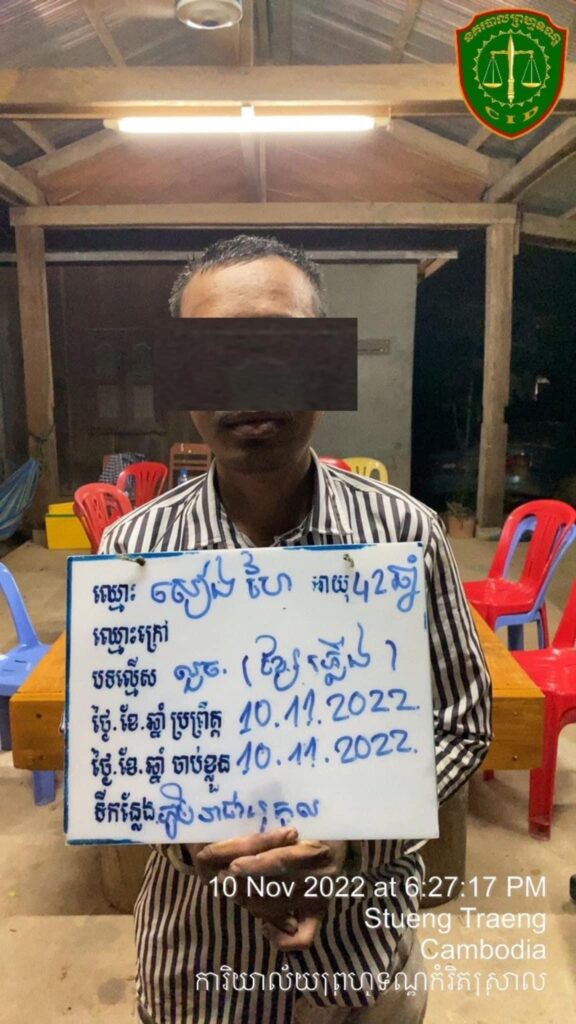 នគរបាលព្រហ្មទណ្ឌ
CID
ឈ្មោះ សៀង ហៃ អាយុ 42 ឆ្នាំ
ឈ្មោះក្រៅ
បទល្មើស លួច. (ខ្សែភ្លើង)
ថ្ងៃ.ខែ.ឆ្នាំ ប្រព្រឹត្ត 10.11.2022.
ថ្ងៃ.ខែ.ឆ្នាំ ចាប់ខ្លួន 10.11.2022.
ទីកន្លែង ភូមិរាជានុកូល
10 Nov 2022 at 6:27:17 PM
Stueng Traeng
Cambodia
ការិយាល័យព្រហ្មទណ្ឌកំរិតស្រាល